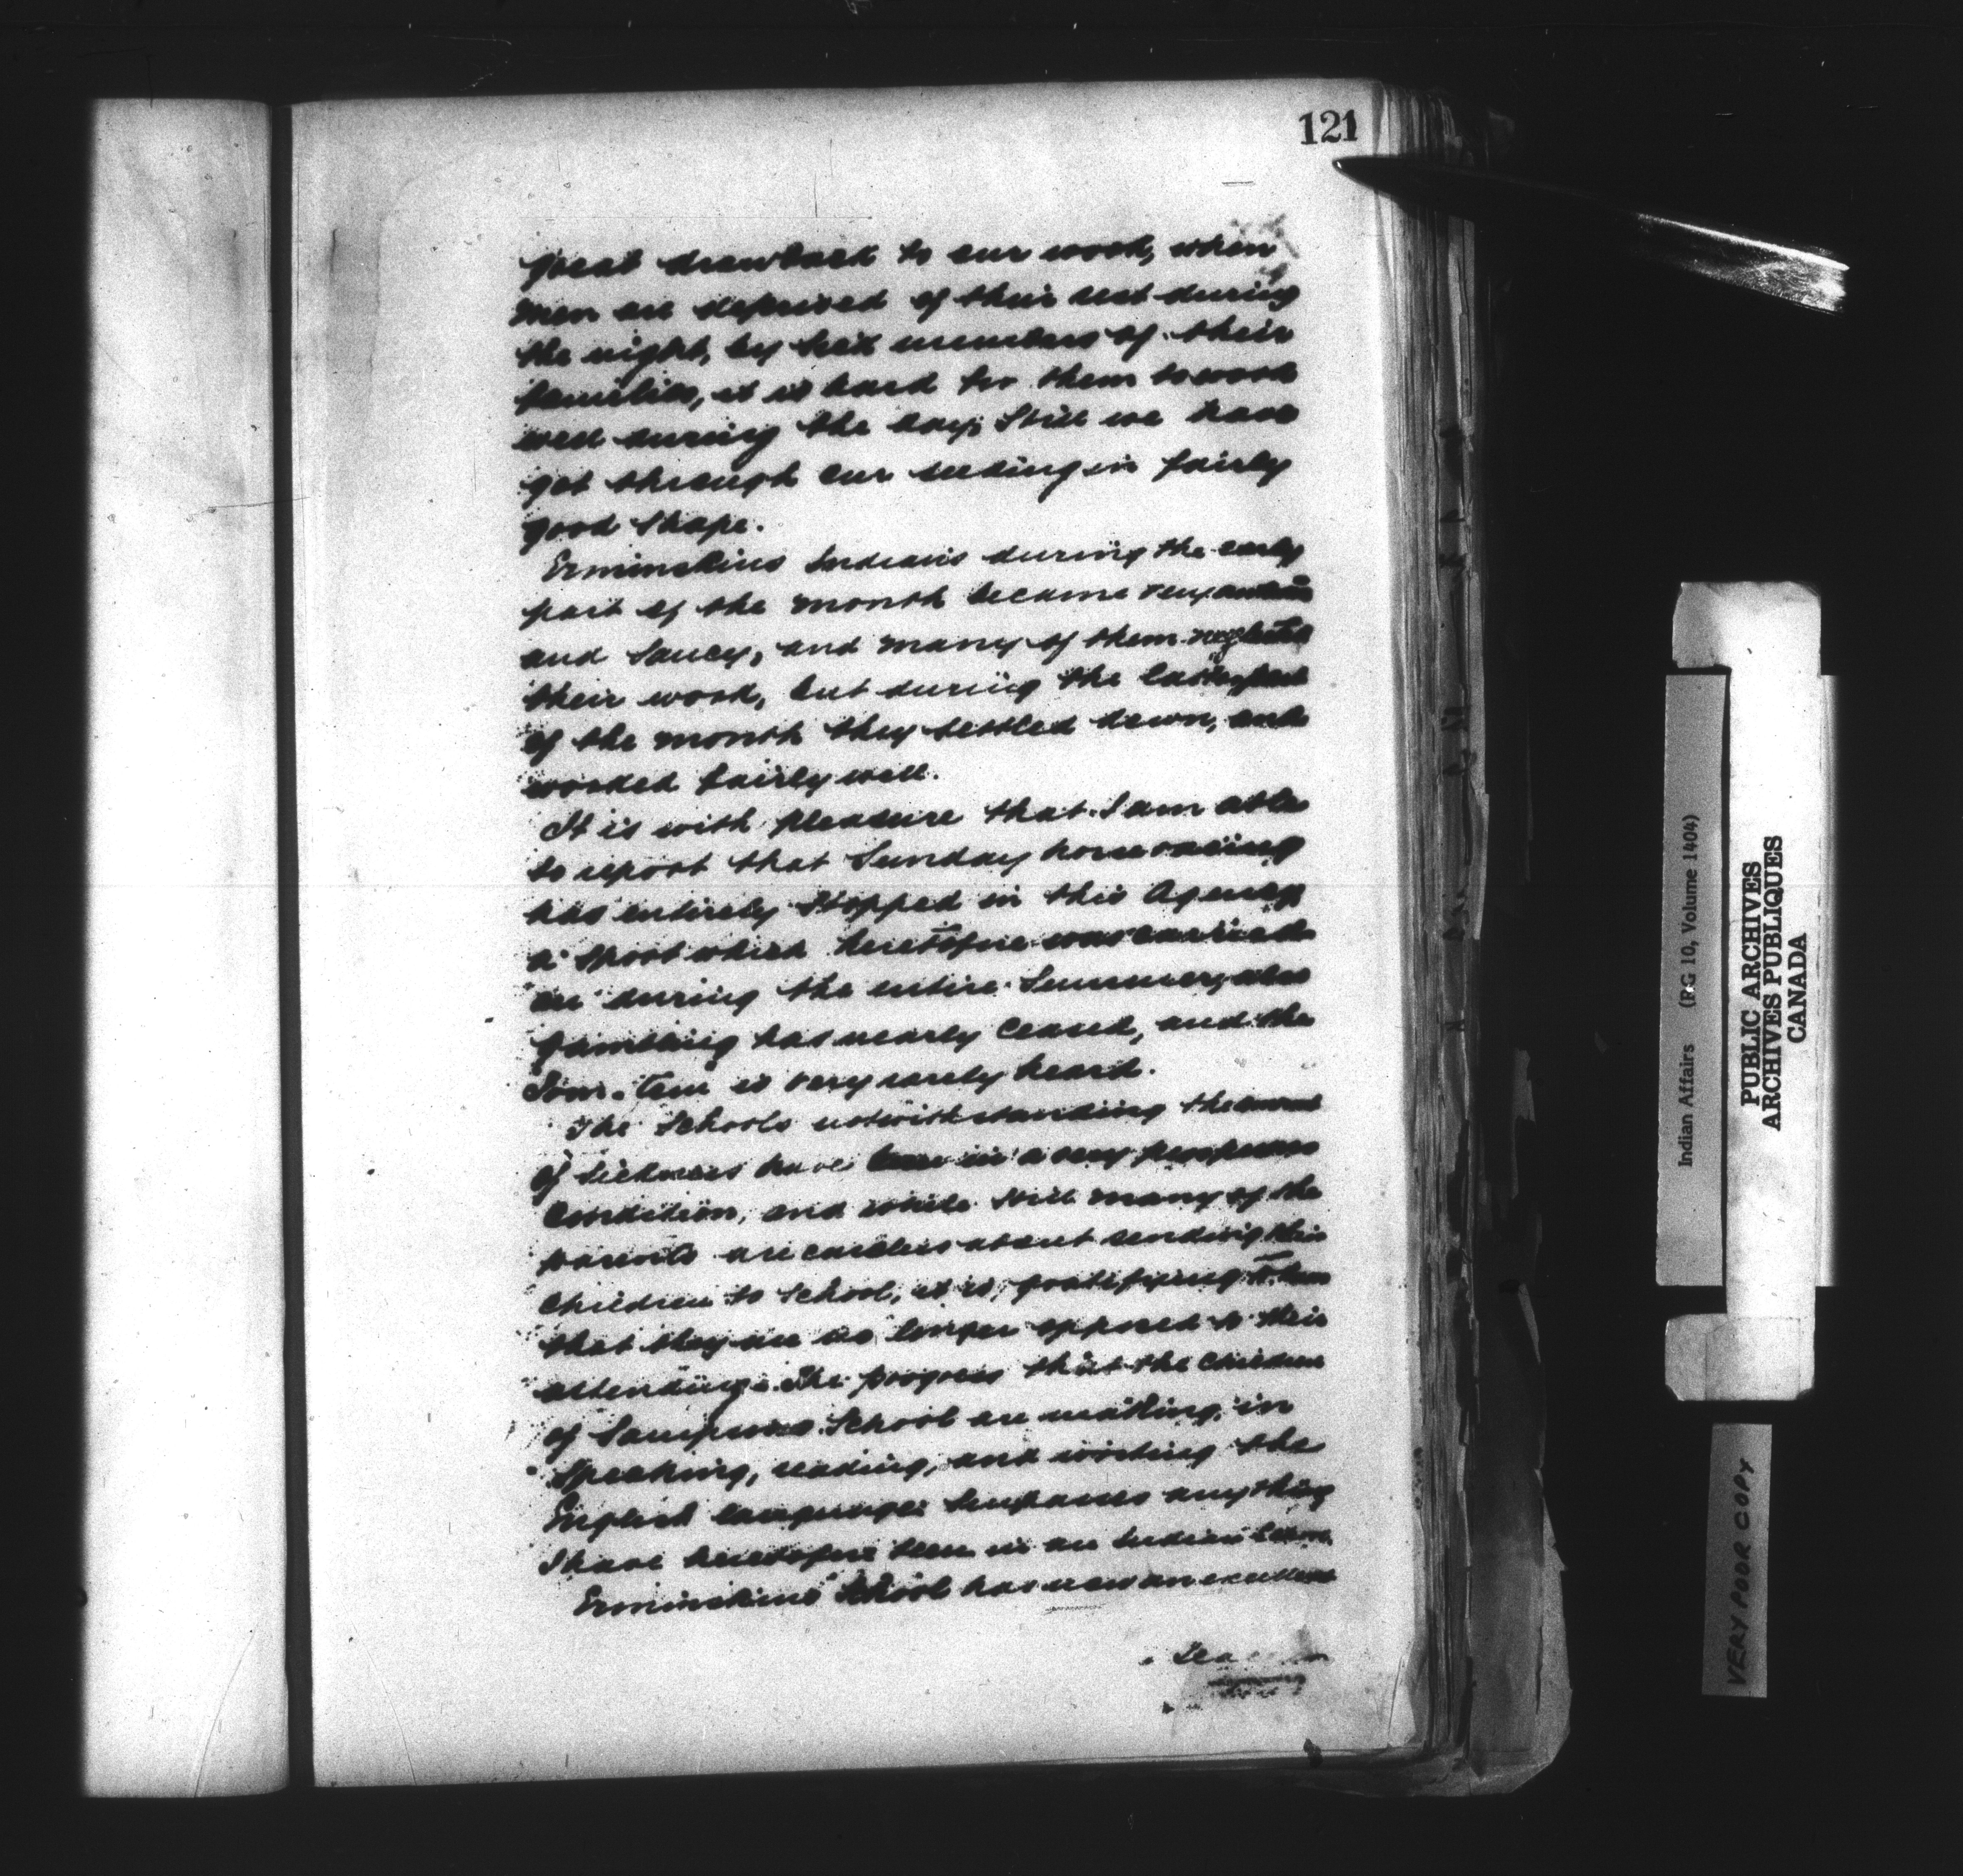 121
great drawback to our work, when
men are deprived of their rest during
the night, by sick members of their
families, it is hard for them to work
well during the day; Still we have
got through our seeding in fairly
good shape.
Ermineskins Indians during the early
part of the month became very
and Saucy, and many of them neglected
their work, but during the latter part
of the month they settled down, and
worked fairly well.
It is with pleasure that I am able
to report that Sunday horse racing
has entirely Stopped in this Agency
a sport which heretofore was carried
on during the entire Summer, also
gambling has nearly Ceased, and the
Tom. Tom is very rarely heard.
The Schools notwithstanding the
of Sickness have been in a very prosperous
Condition, and while still many of the
parents are careless about sending their
Children to School, it is, gratifying to
that they are no longer opposed to their
attending. The progress that the Children
of Sampsons School are making, in
Speaking, reading, and writing the
English language Surpasses anything
I have heretofore seen in an Indian School
Ermineskins School has now an excellent
Indian Affairs (RG 10, Volume 1404)
PUBLIC ARCHIVES
ARCHIVES PUBLIQUES
CANADA
VERY POOR COPY